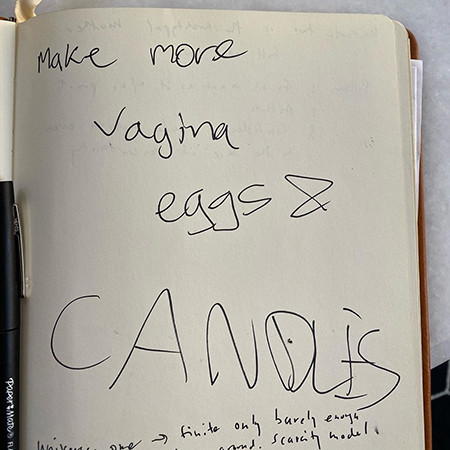 Make more
Vagina
eggs &
CANDLES
universe one → finite only barely enough
around. scarcity model.
Paper:Mate